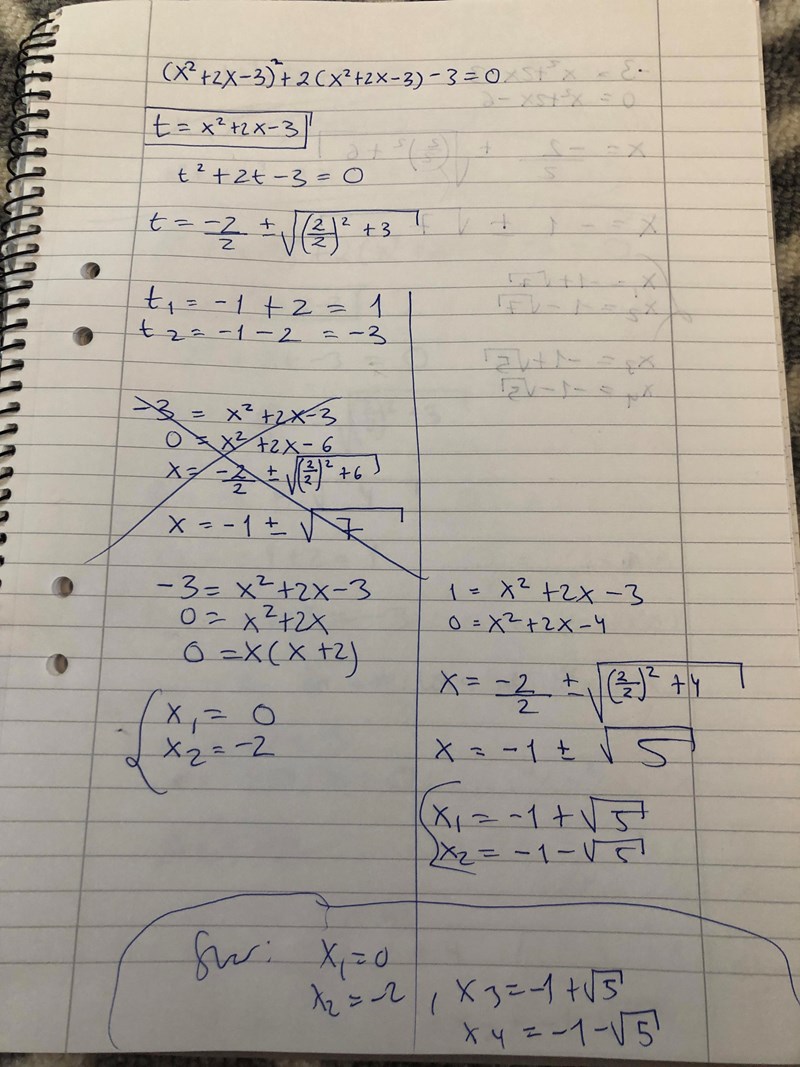 (x²+2x-3)²+2(x²+2x-3)-3=0
t=x²+2x-3
t²+2t-3=0
t=-2/2 ± √((2/2)²+3)
t₁=-1+2=1
t₂=-1-2=-3
-3=x²+2x-3
0=x²+2x-6
x=-2/2 ± √((2/2)²+6)
x=-1±√7
-3=x²+2x-3
0=x²+2x
0=x(x+2)
x₁=0
x₂=-2
1=x²+2x-3
0=x²+2x-4
x=-2/2 ± √((2/2)²+4)
x=-1±√5
x₁=-1+√5
x₂=-1-√5
Svar: x₁=0
x₂=-2, x3=-1+√5
x4=-1-√5